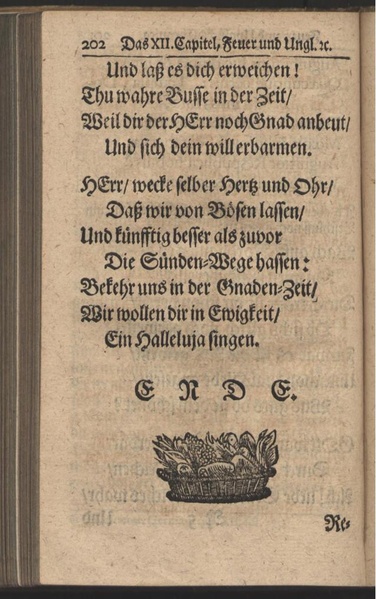 202 Das XII. Capitel, Feuer und Ungl. ꝛc.
Und laß es dich erweichen!
Thu wahre Busse in der Zeit/
Weil dir der HErr noch Gnad anbeut/
Und sich dein will erbarmen.
HErr/ wecke selber Hertz und Ohr/
Daß wir von Bösen lassen/
Und künfftig besser als zuvor
Die Sünden-Wege hassen:
Bekehr uns in der Gnaden-Zeit/
Wir wollen dir in Ewigkeit/
Ein Halleluja singen.
E N D E.
Re-